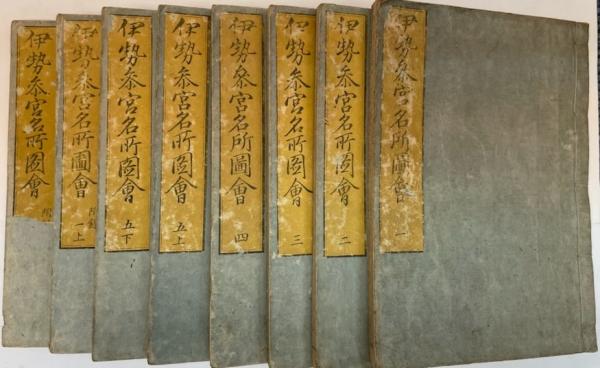 伊勢参宮名所圖會 一
伊勢参宮名所圖會 二
伊勢参宮名所圖會 三
伊勢参宮名所圖會 四
伊勢参宮名所圖會 五上
伊勢参宮名所圖會 五下
伊勢参宮名所圖會 附録 一上
伊勢参宮名所圖會 附